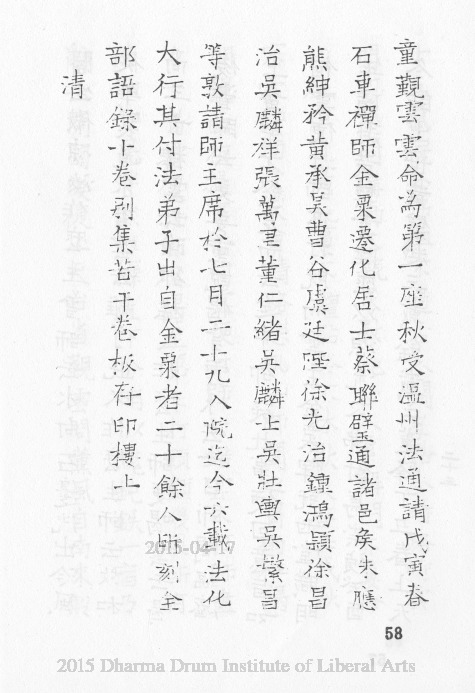 童覲雲雲命為第一座秋受溫州法通請戊寅春
石車禪師金粟遷化居士蔡聯璧通諸邑侯朱應
熊紳衿黄承昊曹谷虞廷陛徐光治鍾鴻穎徐昌
治吳麟祥張萬里董仁緒吳麟上吳壯輿吳繁昌
等敦請師主席於七月二十九入院迄今六載法化
大行其付法弟子出自金粟者二十餘人所刻全
部語錄十卷別集若干卷板存印樓上
清
2015-04-17
58
2015 Dharma Drum Institute of Liberal Arts